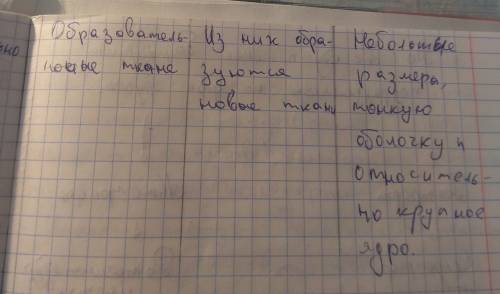 Образователь-
новые ткане
Из них обра-
зуются
новые ткани
Небольшые
размера,
тонкую
оболочку и
относитель-
но крупное
ядро.